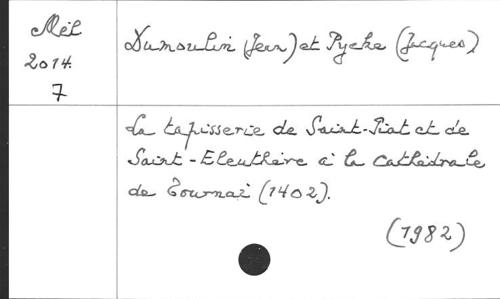 Mél
2014.
7
Dumoulin (Jean) et Pycke (Jacques)
La tapisserie de Saint-Piat et de
Saint-Eleuthère à la cathédrale
de Tournai (1402).
(1982)